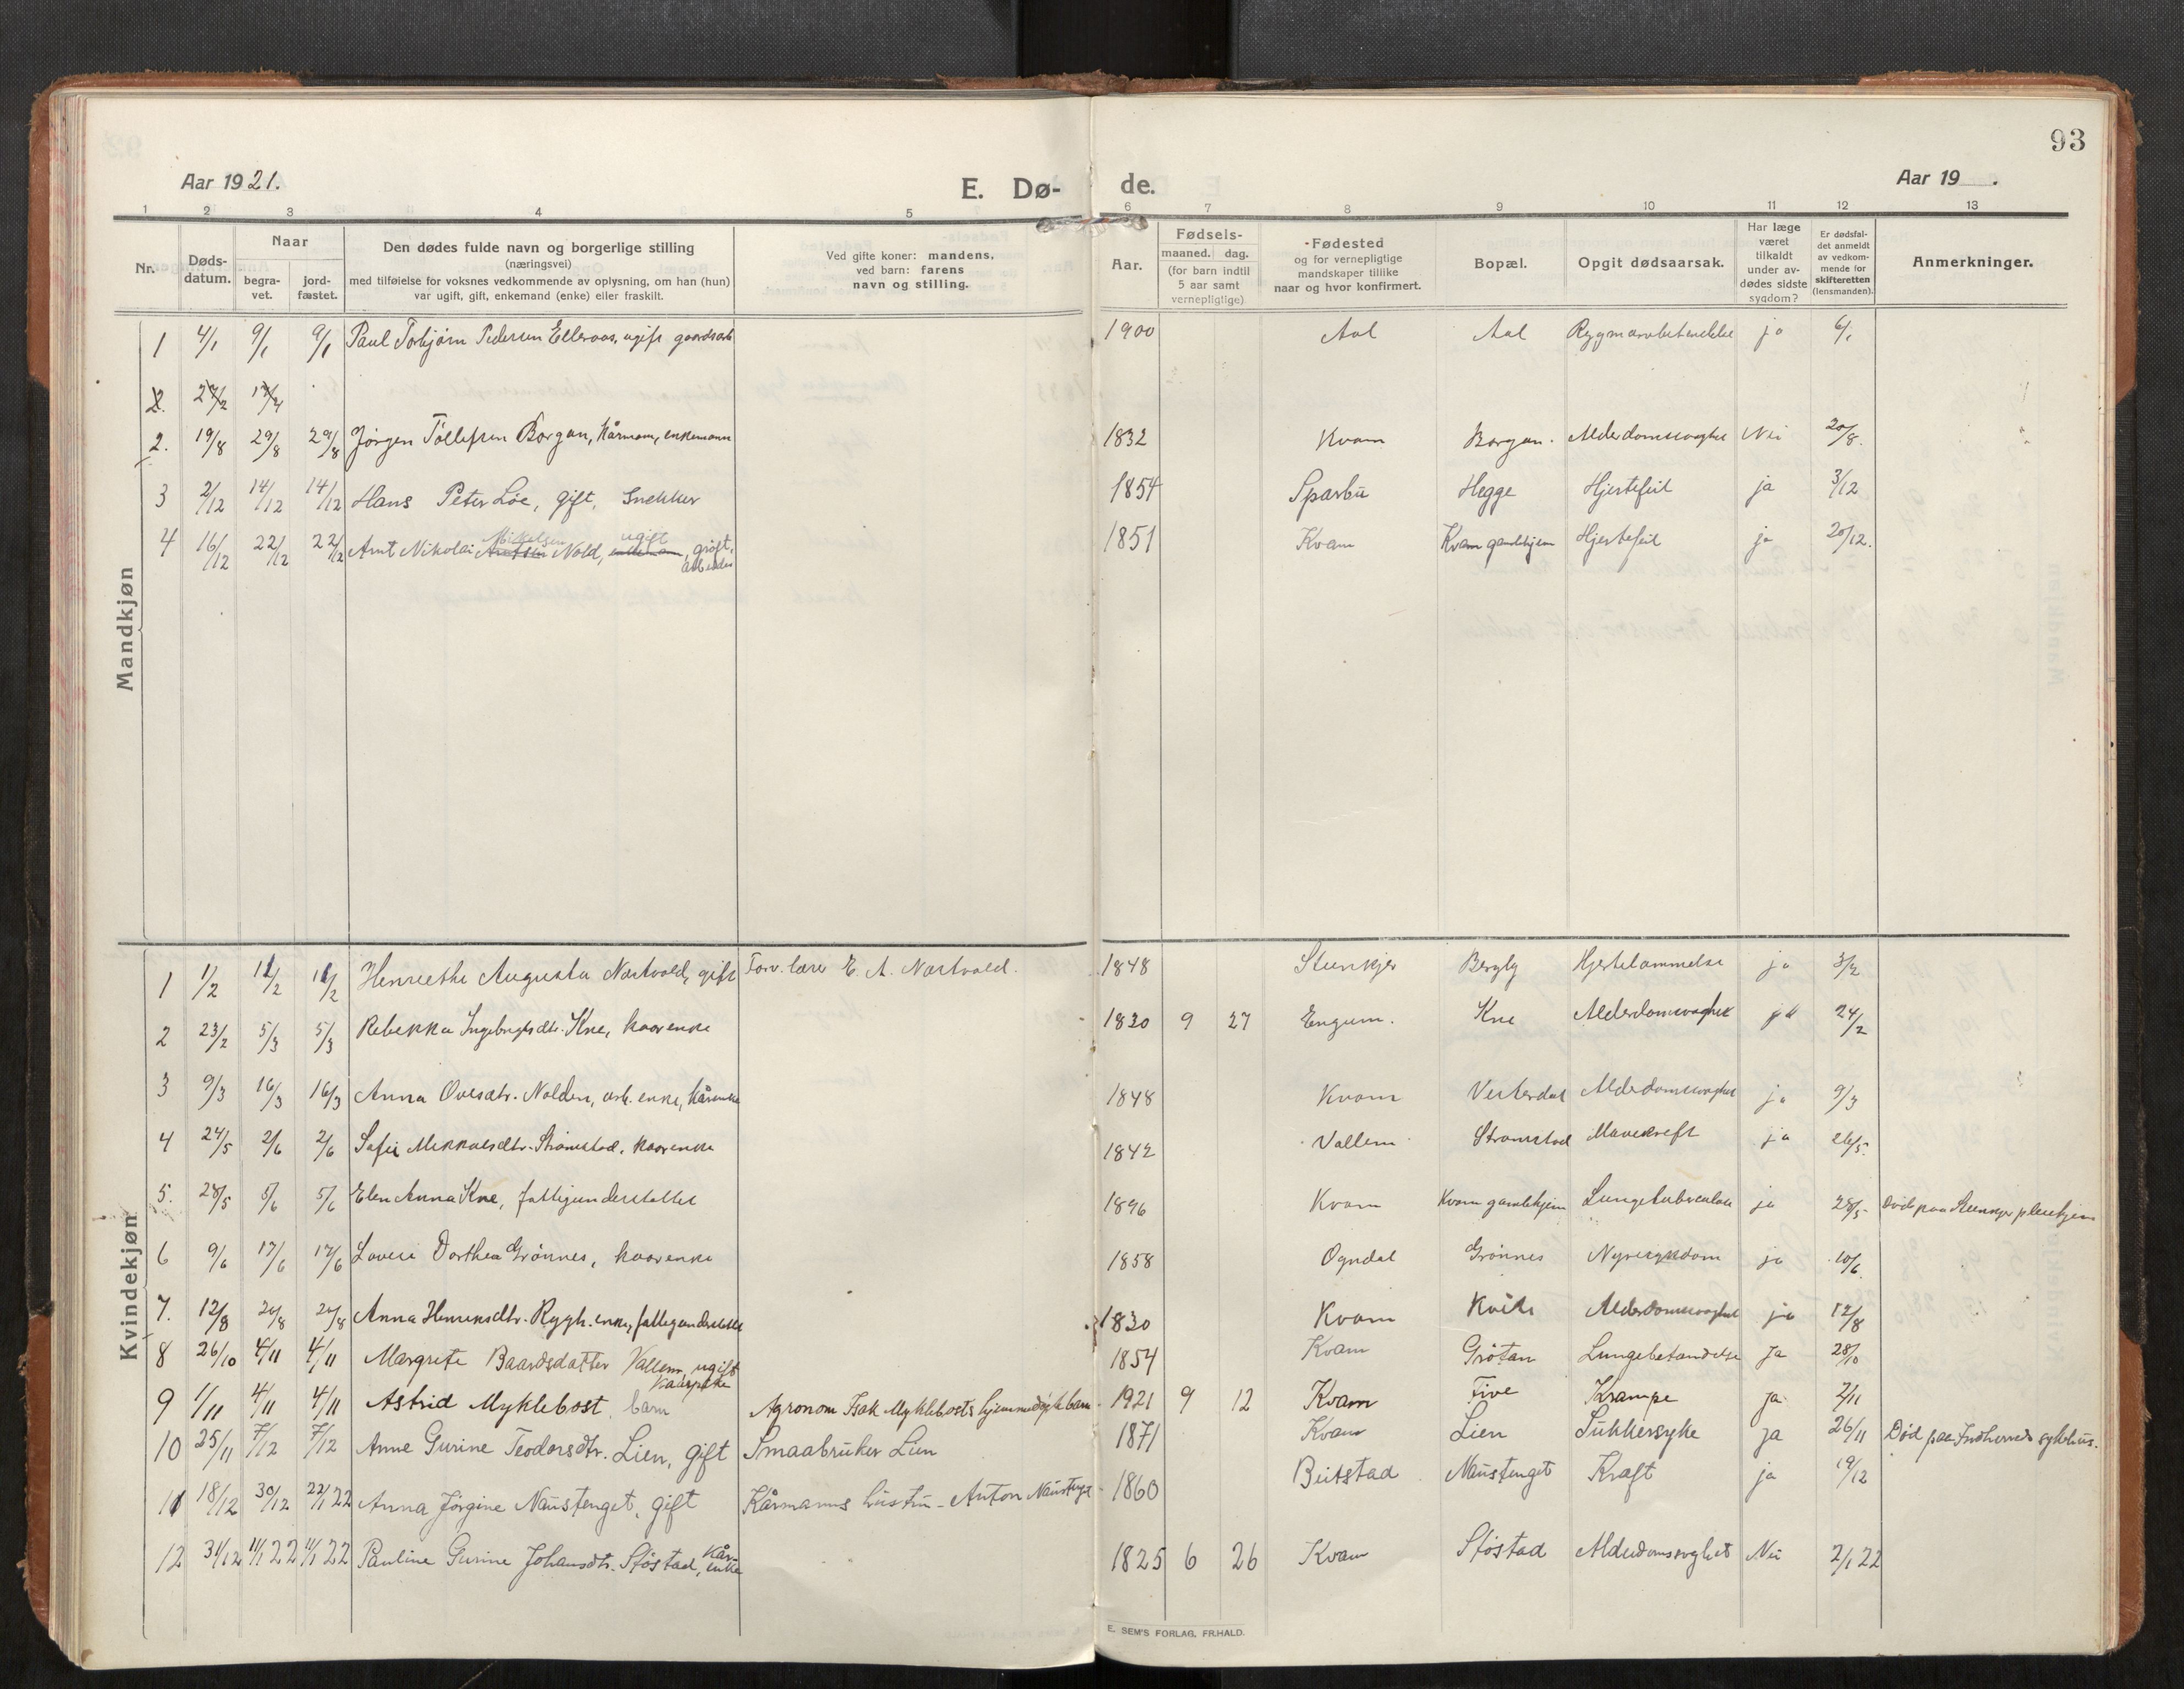 93
Aar 1921.
E. Dø-
de.
Aar 19 .
1 2 3 4 5 6 7 8 9 10 11 12 13
Nr.
Døds-
datum.
Naar
begra-
vet.
jord-
fæstet.
Den dødes fulde navn og borgerlige stilling
(næringsvei)
med tilføielse for voksnes vedkommende av oplysning, om han (hun)
var ugift, gift, enkemand (enke) eller fraskilt.
Ved gifte koner: mandens,
ved barn: farens
navn og stilling.
Aar.
Fødsels-
maaned. dag.
(for barn indtil
5 aar samt
vernepligtige)
Fødested
og for vernepligtige
mandskaper tillike
naar og hvor konfirmert.
Bopæl.
Opgit dødsaarsak.
Har læge
været
tilkaldt
under av-
dødes sidste
sygdom?
Er dødsfal-
det anmeldt
av vedkom-
mende for
skifteretten
(lensmanden).
Anmerkninger.
Mandkjøn
1 4/1 9/1 9/1 Paul Torbjørn Pedersen ugift gaardsarb 1900 Aal Aal ja 6/1
2.
2. 19/8 29/8 29/8 Jørgen Tollefsen Borgan, Kårmann, enkemann 1832 Kvam Borgan. Alderdomssvaghet Nei 20/8.
3 2/12 14/12 14/12 Hans Peter Løe, gift, Snekker 1854 Sparbu Hegge Hjertefeil ja 3/12
Mikelsen ugift
4 16/12 22/12 22/12 Arnt Nikolai Arntsen Nold, enkemann, grøft. 1851 Kvam Kvam gamlehjem Hjertefeil ja 20/12.
arbeider
Kvindekjøn
1 1/2 11/2 11/2 Henriethe Augusta Næstvold, gift Forv. lærer E. A. Næstvold. 1848 Steinkjer Bergly Hjertelammelse ja 3/2
2 23/2 5/3 5/3 Rebekka Ingebrigtsdtr. Kne, kaarenke 1830 9 27 Kne Alderdomssvaghet ja 24/2
3 9/3 16/3 16/3 Anna Ovesdtr. Nolden, arb. enke, kårenke 1848 Kvam Vesterdal Alderdomssvaghet ja 9/3
4 24/5 2/6 2/6 Sofie Mikkalsdtr. Strømstad, kaarenke 1842 Vallem Strømstad Mavekreft ja 26/5.
5. 28/5 5/6 5/6 Elen Anna Kne, fattigunderstøttet 1896 Kvam Kvam gamlehjem Lungetuberkulose ja 28/5 Død paa Steinkjer pleiehjem
6 9/6 17/6 17/6 Lovise Dorthea Grønnes, kaarenke 1858 Ogndal Grønnes Nyresykdom ja 10/6.
7. 12/8 20/8 20/8 Anna Henriksdtr. Rygh. enke, fattigunderstøttet 1830 Kvam Alderdomssvaghet ja 12/8
8 26/10 4/11 4/11 Margrete Baardsdatter Vallem ugift 1854 Kvam Grøtan Lungebetændelse Ja 28/10
Kaarpike
9 1/11 4/11 4/11 Astrid Myklebost, barn Agronom Isak Myklebosts hjemmedøpte barn 1921 9 12 Kvam Five Krampe ja 2/11
10 25/11 7/12 7/12 Anne Gurine Teodorsdtr. Lien, gift Smaabruker Lien 1871 Kvam Lien Sukkersyke ja 26/11 Død paa Indherreds sykehus.
11 18/12 30/12 22/1 22 Anna Jørgine Naustenget, gift Kårmanns hustru - Anton Naustenget 1860 Beitstad Naustenget Kræft ja 19/12
12 31/12 11/1 22 11/1 22 Pauline Gurine Johansdtr. Sføstad, Kår- 1825 6 26 Kvam Sføstad Alderdomssvaghet Nei 2/1 22
enke
E. SEM'S FORLAG, FR.HALD.